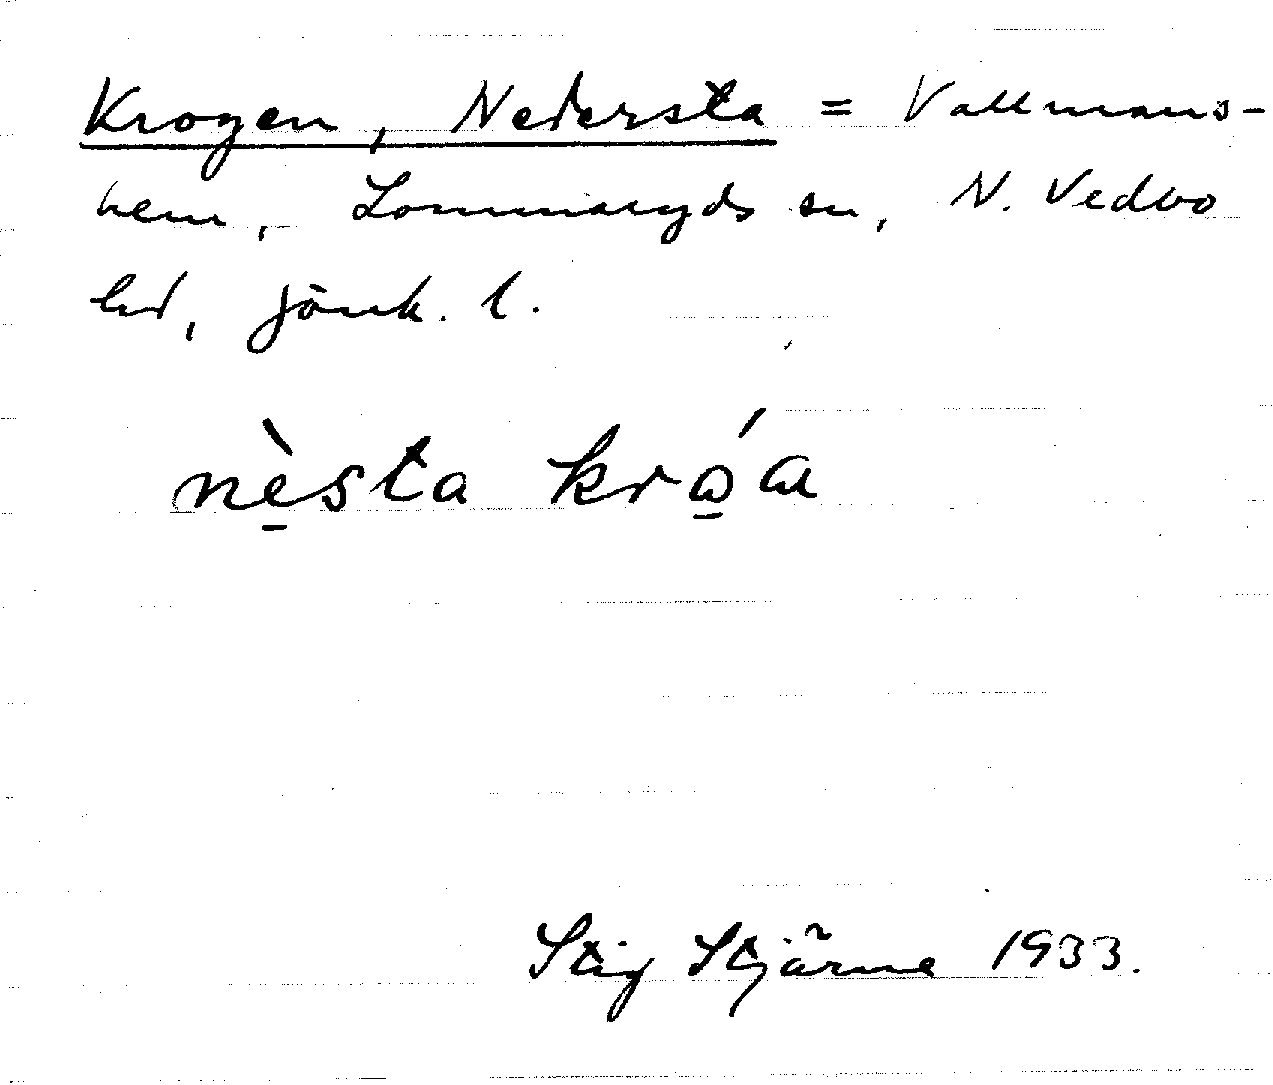 Krogen, Nedersta = Vallmans-
hem, Lommaryds sn, N. Vedbo
hd, Jönk. l.
nèsta króa
Stig Stjärne 1933.